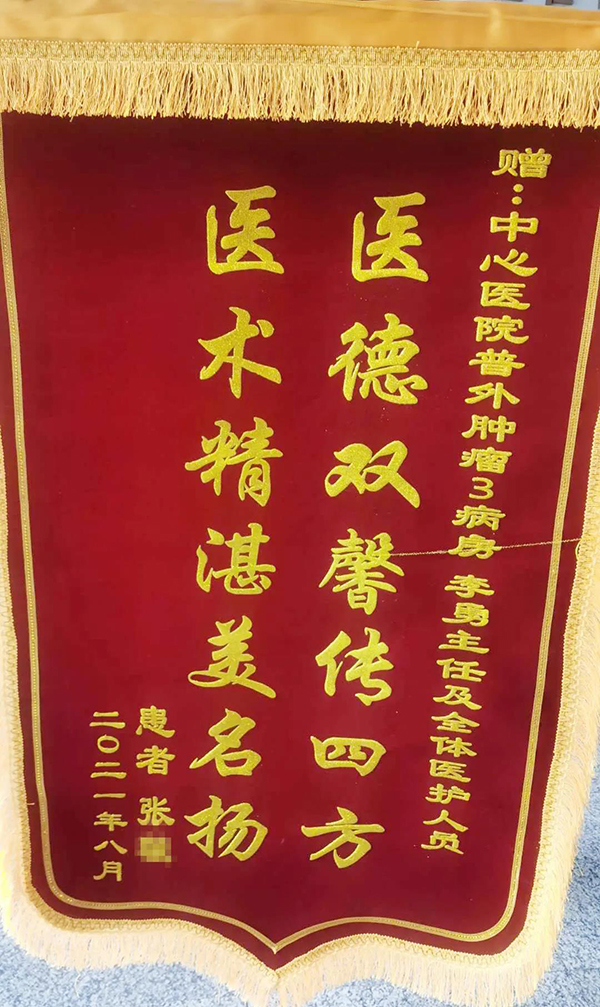 赠:中心医院普外肿瘤3病房 李勇主任及全体医护人员
医德双馨传四方
医术精湛美名扬
患者 张
二〇二一年八月